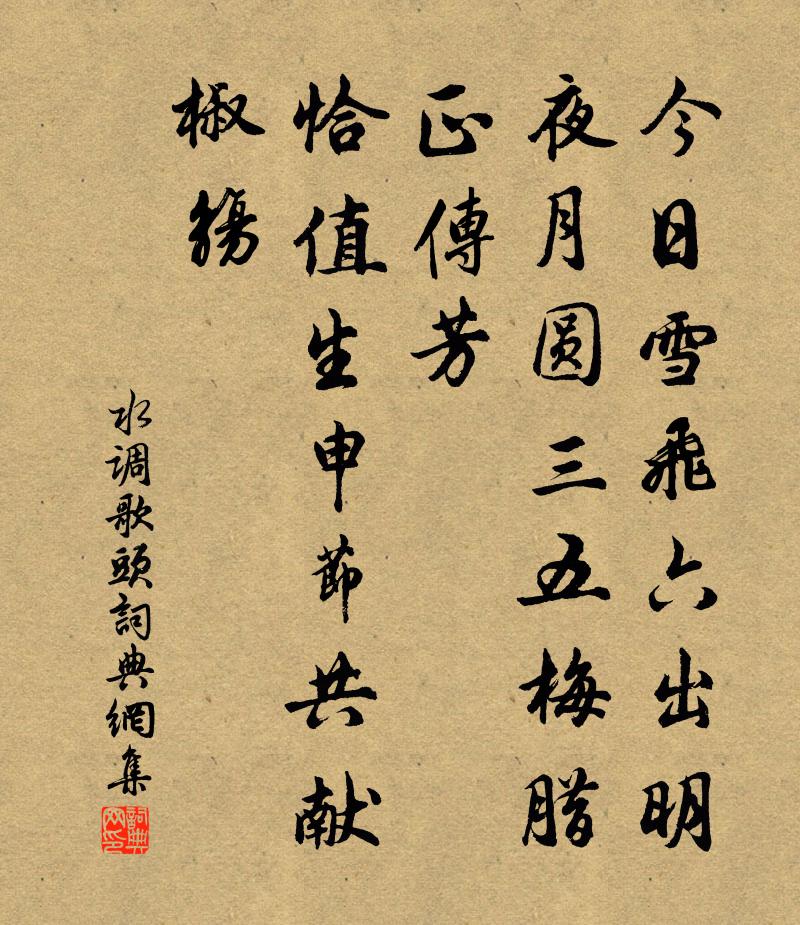 今日雪飛六出明
夜月圆三五梅腊
正傳芳
恰值生申節共献
椒觴
水调歌頭詞典網集
詞典网印